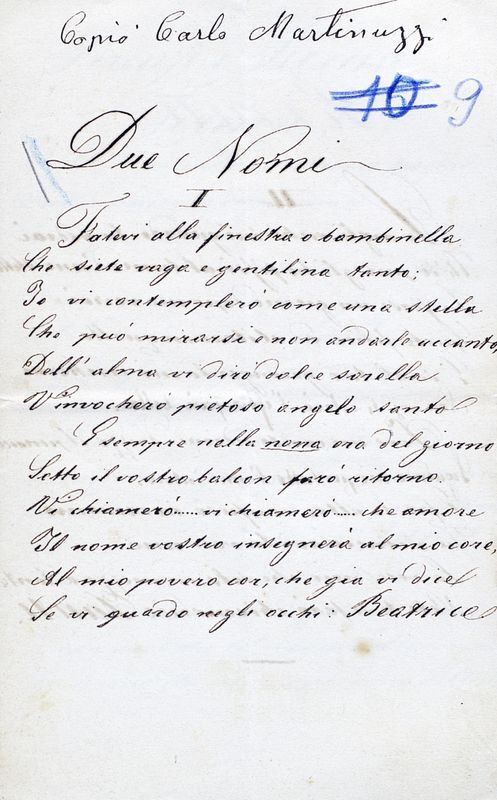 Copió Carlo Martinuzzi
10 9
Due Nomi
I
Fatevi alla finestra o bambinella
Che siete vaga e gentilina tanto;
Io vi contempleró come una stella
Che puó mirarsi e non andarle accanto,
Dell' alma vi diró dolce sorella
V'invocheró pietoso angelo santo
E sempre nella nona ora del giorno
Sotto il vostro balcon faró ritorno.
Vi chiameró...... vi chiameró..... che amore
Il nome vostro insegnerá al mio core,
Al mio povero cor, che gia vi dice
Se vi guardo negli occhi: Beatrice